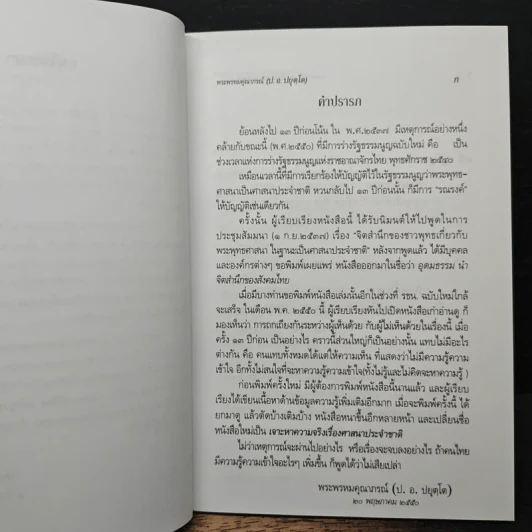 พระพรหมคุณาภรณ์ (ป. อ. ปยุตฺโต) ก
คำปรารภ
ย้อนหลังไป ๑๓ ปีก่อนโน้น ใน พ.ศ.๒๕๓๗ มีเหตุการณ์อย่างหนึ่ง
คล้ายกับขณะนี้ (พ.ศ.๒๕๕๐) ที่มีการร่างรัฐธรรมนูญฉบับใหม่ คือ เป็น
ช่วงเวลาแห่งการร่างรัฐธรรมนูญแห่งราชอาณาจักรไทย พุทธศักราช ๒๕๔๐
เหมือนเวลานี้ที่มีการเรียกร้องให้บัญญัติไว้ในรัฐธรรมนูญว่าพระพุทธ-
ศาสนาเป็นศาสนาประจำชาติ หวนกลับไป ๑๓ ปีก่อนนั้น ก็มีการ "รณรงค์"
ให้บัญญัติเช่นเดียวกัน
ครั้งนั้น ผู้เรียบเรียงหนังสือนี้ ได้รับนิมนต์ให้ไปพูดในการ
ประชุมสัมมนา (๑ ก.ย.๒๕๓๗) เรื่อง "จิตสำนึกของชาวพุทธเกี่ยวกับ
พระพุทธศาสนา ในฐานะเป็นศาสนาประจำชาติ" หลังจากพูดแล้ว ได้มีบุคคล
และองค์กรต่างๆ ขอพิมพ์เผยแพร่ หนังสือออกมาในชื่อว่า อุดมธรรม นำ
จิตสำนึกของสังคมไทย
เมื่อมีบางท่านขอพิมพ์หนังสือเล่มนั้นอีกในช่วงที่ รธน. ฉบับใหม่ใกล้
จะเสร็จ ในเดือน พ.ค. ๒๕๕๐ นี้ ผู้เรียบเรียงหันไปเปิดหนังสือเก่าอ่านดู ก็
มองเห็นว่า การถกเถียงกันระหว่างผู้เห็นด้วย กับผู้ไม่เห็นด้วยในเรื่องนี้ เมื่อ
ครั้ง ๑๓ ปีก่อน เป็นอย่างไร คราวนี้ส่วนใหญ่ก็เป็นอย่างนั้น แทบไม่มีอะไร
ต่างกัน คือ คนแทบทั้งหมดได้แต่ให้ความเห็น ที่แสดงว่าไม่มีความรู้ความ
เข้าใจ อีกทั้งไม่สนใจที่จะหาความรู้ความเข้าใจ(ทั้งไม่รู้และไม่คิดจะหาความรู้)
ก่อนพิมพ์ครั้งใหม่ มีผู้ต้องการพิมพ์หนังสือนี้นานแล้ว และผู้เรียบ
เรียงได้เขียนเนื้อหาด้านข้อมูลความรู้เพิ่มเติมอีกมาก เมื่อจะพิมพ์ครั้งนี้ ได้
ยกมาดู แล้วตัดบ้างเติมบ้าง หนังสือหนาขึ้นอีกหลายหน้า และเปลี่ยนชื่อ
หนังสือใหม่เป็น เจาะหาความจริงเรื่องศาสนาประจำชาติ
ไม่ว่าเหตุการณ์จะผ่านไปอย่างไร หรือเรื่องจะจบลงอย่างไร ถ้าคนไทย
มีความรู้ความเข้าใจอะไรๆ เพิ่มขึ้น ก็พูดได้ว่าไม่เสียเปล่า
พระพรหมคุณาภรณ์ (ป. อ. ปยุตฺโต)
๒๐ พฤษภาคม ๒๕๕๐